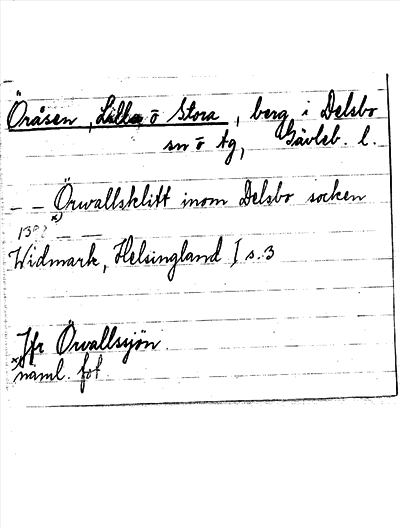 Öråsen, Lilla o Stora, berg i Delsbo
sn o tg, Gävleb. l.
– – Örwallsklitt inom Delsbo socken
x) – –
Widmark, Helsingland I s. 3
Jfr Örwallssjön
x) näml. fot